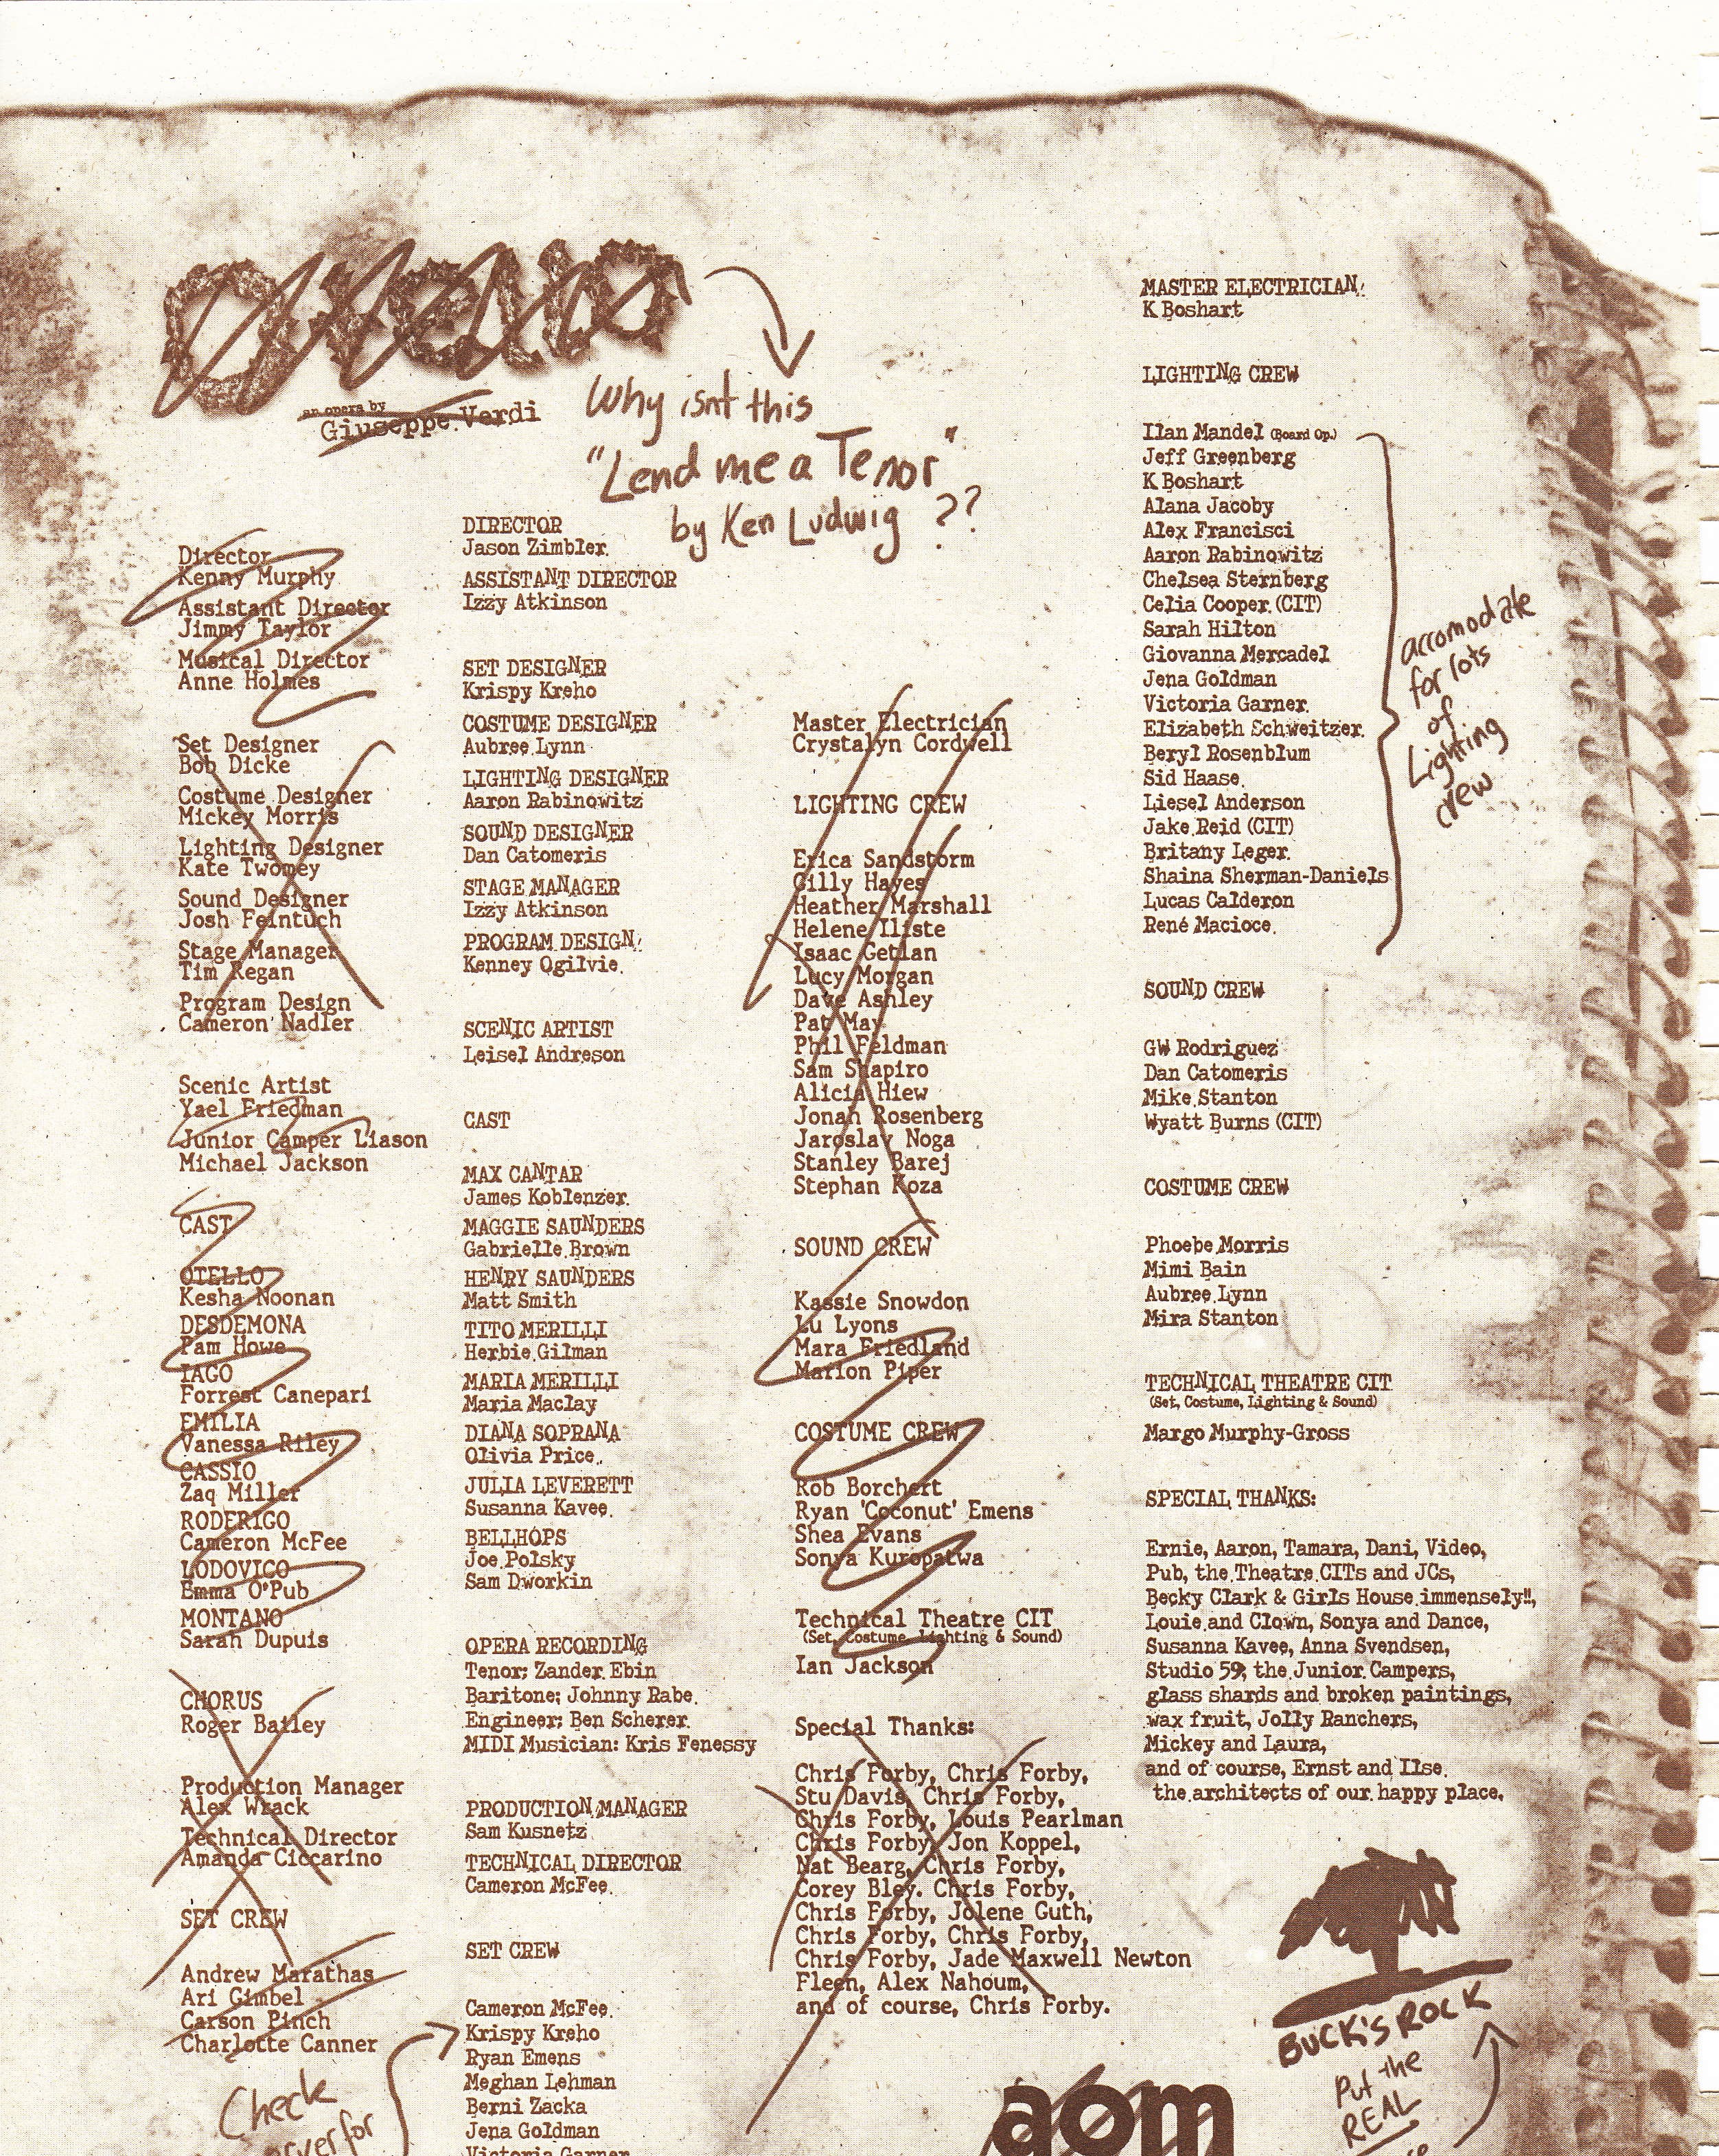 an opera by
Giuseppe Verdi
Why isnt this
"Lend me a Tenor"
by Ken Ludwig ??
Director
Kenny Murphy
Assistant Director
Jimmy Taylor
Musical Director
Anne Holmes
Set Designer
Bob Dicke
Costume Designer
Mickey Morris
Lighting Designer
Kate Twomey
Sound Designer
Josh Feintuch
Stage Manager
Tim Regan
Program Design
Cameron Nadler
Scenic Artist
Yael Friedman
Junior Camper Liason
Michael Jackson
CAST
OTELLO
Kesha Noonan
DESDEMONA
Pam Howe
IAGO
Forrest Canepari
EMILIA
Vanessa Riley
CASSIO
Zaq Miller
RODERIGO
Cameron McFee
LODOVICO
Emma O'Pub
MONTANO
Sarah Dupuis
CHORUS
Roger Bailey
Production Manager
Alex Wrack
Technical Director
Amanda Ciccarino
SET CREW
Andrew Marathas
Ari Gimbel
Carson Pinch
Charlotte Canner
Check
for
DIRECTOR
Jason Zimbler
ASSISTANT DIRECTOR
Izzy Atkinson
SET DESIGNER
Krispy Kreho
COSTUME DESIGNER
Aubree Lynn
LIGHTING DESIGNER
Aaron Rabinowitz
SOUND DESIGNER
Dan Catomeris
STAGE MANAGER
Izzy Atkinson
PROGRAM DESIGN
Kenney Ogilvie
SCENIC ARTIST
Leisel Andreson
CAST
MAX CANTAR
James Koblenzer
MAGGIE SAUNDERS
Gabrielle Brown
HENRY SAUNDERS
Matt Smith
TITO MERILLI
Herbie Gilman
MARIA MERILLI
Maria Maclay
DIANA SOPRANA
Olivia Price
JULIA LEVERETT
Susanna Kavee
BELLHOPS
Joe Polsky
Sam Dworkin
OPERA RECORDING
Tenor: Zander Ebin
Baritone: Johnny Rabe
Engineer: Ben Scherer
MIDI Musician: Kris Fenessy
PRODUCTION MANAGER
Sam Kusnetz
TECHNICAL DIRECTOR
Cameron McFee
SET CREW
Cameron McFee
Krispy Kreho
Ryan Emens
Meghan Lehman
Berni Zacka
Jena Goldman
Victoria Garner
Master Electrician
Crystalyn Cordwell
LIGHTING CREW
Erica Sandstorm
Gilly Hayes
Heather Marshall
Helene Iliste
Isaac Getlan
Lucy Morgan
Dave Ashley
Pat May
Phil Feldman
Sam Shapiro
Alicia Hiew
Jonah Rosenberg
Jaroslav Noga
Stanley Barej
Stephan Koza
SOUND CREW
Kassie Snowdon
Lu Lyons
Mara Friedland
Marion Piper
COSTUME CREW
Rob Borchert
Ryan 'Coconut' Emens
Shea Evans
Sonya Kuropatwa
Technical Theatre CIT
(Set, Costume, Lighting & Sound)
Ian Jackson
Special Thanks:
Chris Forby, Chris Forby,
Stu Davis, Chris Forby,
Chris Forby, Louis Pearlman
Chris Forby, Jon Koppel,
Nat Bearg, Chris Forby,
Corey Bley. Chris Forby,
Chris Forby, Jolene Guth,
Chris Forby, Chris Forby,
Chris Forby, Jade Maxwell Newton
Fleen, Alex Nahoum,
and of course, Chris Forby.
aom
MASTER ELECTRICIAN:
K Boshart
LIGHTING CREW
Ilan Mandel (Board Op.)
Jeff Greenberg
K Boshart
Alana Jacoby
Alex Francisci
Aaron Rabinowitz
Chelsea Sternberg
Celia Cooper (CIT)
Sarah Hilton
Giovanna Mercadel
Jena Goldman
Victoria Garner
Elizabeth Schweitzer
Beryl Rosenblum
Sid Haase
Liesel Anderson
Jake Reid (CIT)
Britany Leger
Shaina Sherman-Daniels
Lucas Calderon
René Macioce
accomodate
for lots
of
Lighting
crew
SOUND CREW
GW Rodriguez
Dan Catomeris
Mike Stanton
Wyatt Burns (CIT)
COSTUME CREW
Phoebe Morris
Mimi Bain
Aubree Lynn
Mira Stanton
TECHNICAL THEATRE CIT
(Set, Costume, Lighting & Sound)
Margo Murphy-Gross
SPECIAL THANKS:
Ernie, Aaron, Tamara, Dani, Video,
Pub, the Theatre CITs and JCs,
Becky Clark & Girls House immensely!!,
Louie and Clown, Sonya and Dance,
Susanna Kavee, Anna Svendsen,
Studio 59, the Junior Campers,
glass shards and broken paintings,
wax fruit, Jolly Ranchers,
Mickey and Laura,
and of course, Ernst and Ilse.
the architects of our happy place.
BUCK'S ROCK
Put the
REAL